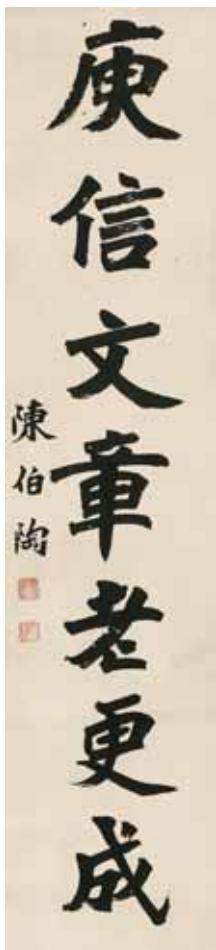 庾信文章老更成
陳伯陶